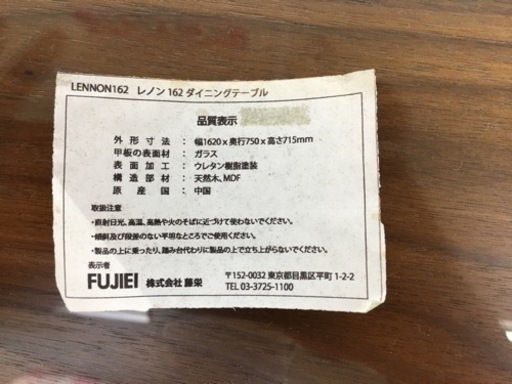 LENNON162 レノン 162 ダイニングテーブル
品質表示
外形寸法 : 幅1620 x 奥行750 x 高さ715mm
甲板の表面材 : ガラス
表面加工 : ウレタン樹脂塗装
構造部材 : 天然木、MDF
原産国 : 中国
取扱注意
・直射日光、高温、高熱や火のそばに近づけて使わないでください。
・傾斜及び段差のない平明なところでご使用ください。
・製品の上に乗ったり、踏み台代わりに製品の上で立ち上がらないでください。
表示者
FUJIEI 株式会社 藤栄
〒152-0032 東京都目黒区平町 1-2-2
TEL 03-3725-1100